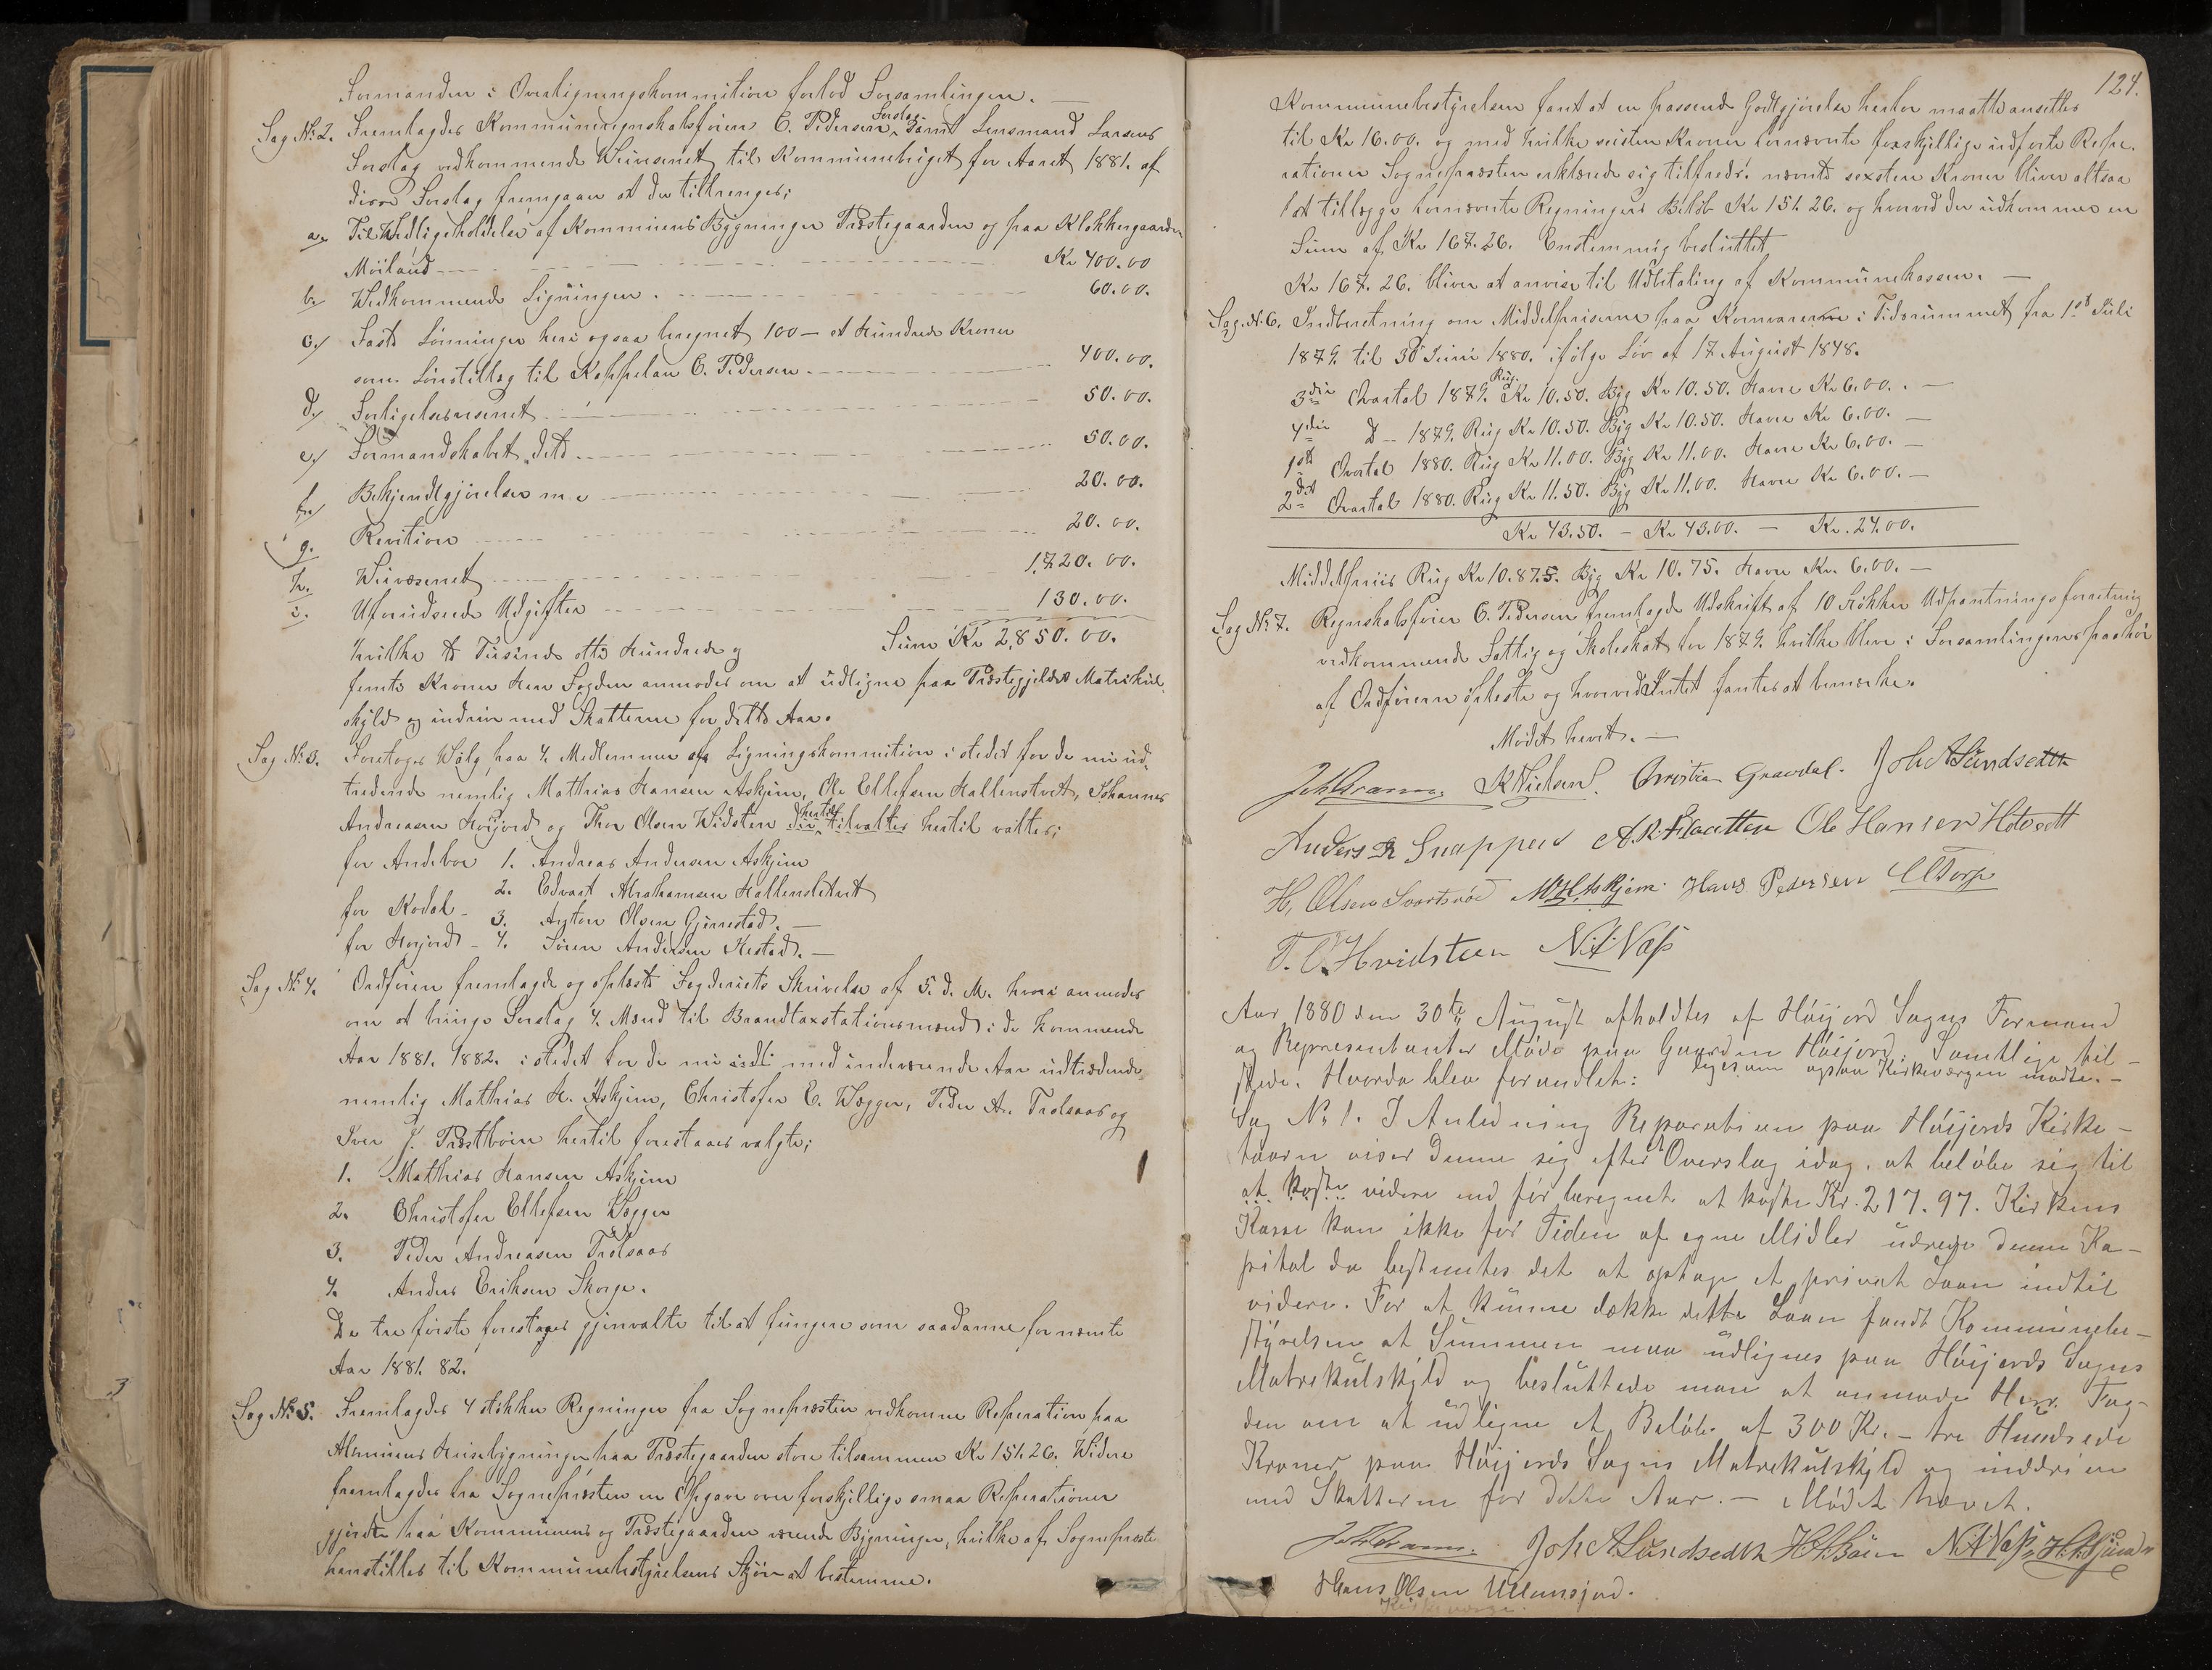 Formanden i Overligningskommition forlod Forsamlingen. —
Sag No 2. Fremlagdes Kommuneregnskabsfører C. Pedersen Forslag samt Lensmand Larsens
Forslag vedkommende Veivæsenet til Kommunebriget for Aaret 1881. af
disse Forslag fremgaaer at der tiltrenges;
a. Til Vedligeholdelse af Kommunens Bygninger Præstegaarden og paa Klokkergaarden
Møiland Kr 400.00
b. Vedkommende Ligningen. 60.00.
c. Faste Lønninger heri ogsaa beregnet 100 — et Hundrede Kroner
som Lønstillæg til Kappelan C. Pedersen. 400.00.
d. Forligelsesvæsenet 50.00.
e. Formandskabet dets 50.00.
f. Bekjendtgjørelser m. v 20.00.
g. Revition 20.00.
h. Veivæsenet 1,720.00.
i. Uforudseede Udgifter 130.00.
hvilke to Tusinde otte Hundrede og Sum Kr 2,850.00.
femti Kroner Herr Fogden anmodes om at udligne paa Præstegjeldets Matrikul
skyld og inddrive med Skatterne for dette Aar.
Sag No 3. Foretoges Valg paa 4 Medlemmer af Ligningskommition i stedet for de nu ud
tredende nemlig Mathias Hansen Askjem, Ole Ellefsen Hallenstvet, Johannes
Andreasen Høijord og Thor Olsen Hvidsten der hertil tilvalter hertil valtes;
for Andebo 1. Andreas Andersen Askjem
2. Edvart Abrahamsen Hallenstvet
for Kodal - 3. Anton Olsen Gjerrestad. —
for Høijord - 4. Søren Andersen Skestad. —
Sag No 4. Ordføren fremlagde og oplæste Fogderiets Skrivelse af 5. d. M. hvori anmodes
om at bringe Forslag 4. Mænd til Brandtaxstationsmænd i de kommende
Aar 1881. 1882. i stedet for de nu med indeværende Aar udtrædende
nemlig Mathias H. Askjem, Christofer E. Vegger, Peder A. Trolsaas og
Iver J. Præstbøen hertil forestaaes valgte;
1. Mathias Hansen Askjem
2. Christofer Ellefsen Vegger
3. Peder Andreasen Trolsaas
4. Anders Eriksen Skorge.
De tre første forestages gjenvalte til at fungere som saadanne for nævnte
Aar 1881. 82.
Sag No 5. Fremlagdes 4 stökker Regninger fra Sognepræsten vedkomme Reperation paa
Almuens Husebygninger paa Præstegaarden store tilsammen Kr 151.26. Videre
fremlagdes fra Sognepræsten en Opgave over forskjellige smaa Reperationer
gjorte paa Kommunens og Præstegaarden værende Bygninger, hvilke af Sognepræste
henstilles til Kommunebestyrelsens Skjøn at bestemme.
124.
Kommunebestyrelsen fant at en passende Godtgjørelse herfor maatte ansettes
til Kr 16.00. og med hvilke seisten Kroner fornævnte forskjellige udførte Repe.
rationer Sognepræsten erklærede sig tilfreds. nævnte sexsten Kroner bliver altsaa
at tillægge fornævnte Regningers Beløb Kr 151.26. og hvorved der udkommer en
Sum af Kr 167.26. Enstemmig besluttet
Kr 167.26. bliver at anvise til Udbetaling af Kommunekassen. —
Sag No 6. Indberetning om Middelpriserne paa Kornvarerne i Tidsrummet fra 1st Juli
1879 til 30 Juni 1880. ifølge Lov af 17 August 1848.
3die Qvartal 1879. Rug Kr 10.50. Byg Kr 10.50. Havre Kr 6.00. —
4die D — 1879. Rug Kr 10.50. Byg Kr 10.50. Havre Kr 6.00. —
1ste Qvartal 1880. Rug Kr 11.00. Byg Kr 11.00. Havre Kr 6.00. —
2det Qvartal 1880. Rug Kr 11.50. Byg Kr 11.00. Havre Kr 6.00. —
Kr 43.50. — Kr 43.00. — Kr. 24.00.
Middelpriis Rug Kr 10.87.5. Byg Kr 10.75. Havre Kr. 6.00. —
Sag No 7. Regnskabsfører C. Pedersen fremlagde Udskrift af 10 stökker Udpantningsforretning
vedkommende Fattig og Skoleskat for 1879. hvilke blev i Forsamlingens paahør
af Ordføreren oplæste og hvorved Intet fantes at bemærke.
Mødet hævet. —
Joh Gram. K Nielsen. Christian Gravdal. Joh A Sundsedth
Anders R Gnapperud A. R. Flaatten Ole Hansen Hotvedt
H. Olsen Svartsrød M H Askjem. Hans Pedersen C Torp
T. O. Hvidsteen N. A. Vaß
Aar 1880 den 30te August afholdtes af Høijord Sogns Formænd
og Representanter Møde paa Gaarden Høijord. Samtlige til-
stede. Hvorda blev forandlet: ligesom ogsaa Kirkeværgen mødte. -
Sag No 1. I Anledning Reparation paa Høijords Kirke-
taarn viser denne sig efter Overslag idag, at beløbe sig til
at koste videre end før beregnet at koste Kr. 217.97. Kirkens
Kasse kan ikke for Tiden af egne Midler udrede denne Ka-
pital da bestemtes det at optage et privat Laan indtil
videre. For at kunne dække dette Laan fandt Kommunebe-
styrelsen at Summen maa udlignes paa Høijords Sogns
Matrekulskyld og besluttede man at anmode Herr. Fog-
den om at udligne et Beløb af 300 Kr. — tre Hundrede
Kroner paa Høijords Sogns Matrekulskyld og inddrive
med Skatterne for dette Aar. — Mødet hævet.
Joh Gram. Joh A Sundsedth H. A. Bøen N A Vaß,
Hans Olsen Ullensjord.
Kirkeværge.